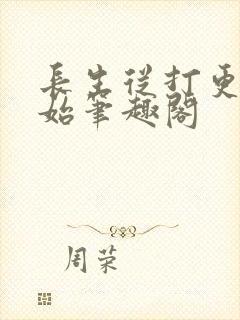 長生從打更
始筆趣閣
周荣